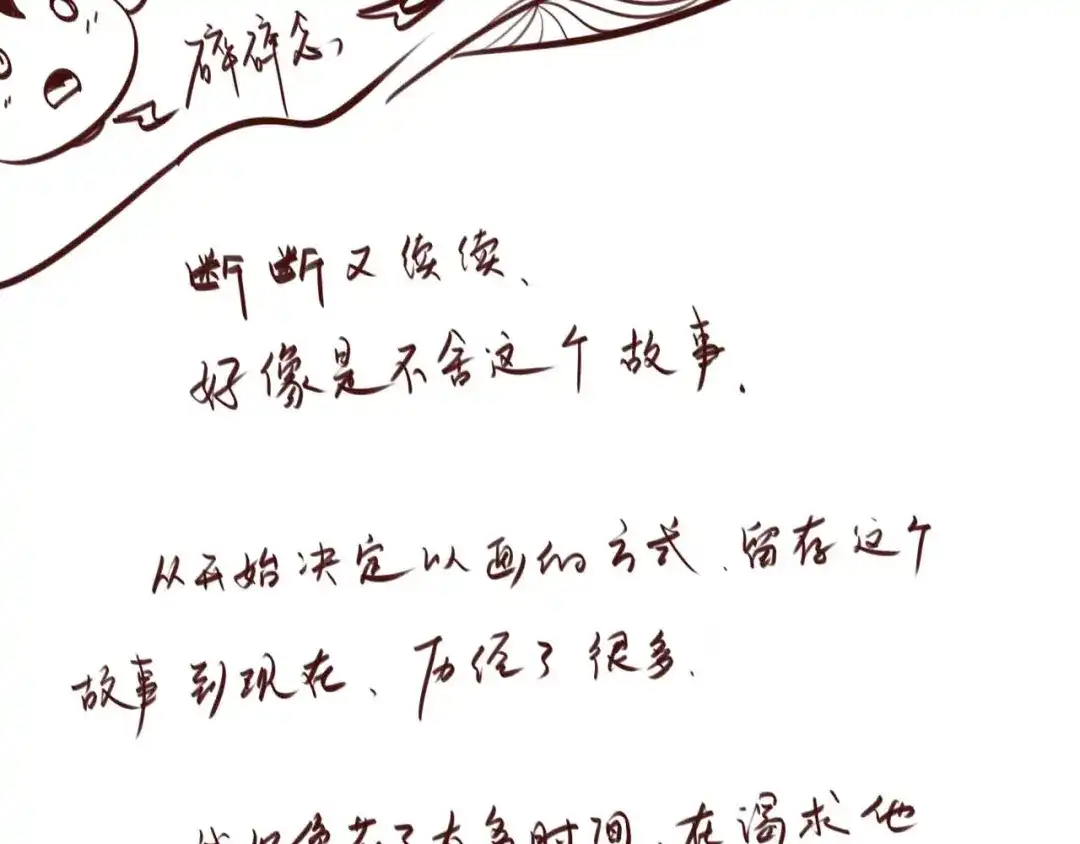 碎碎念，
断断又续续、
好像是不舍这个故事.
从开始决定以画的方式、留存这个
故事到现在、历经了很多.
我好像花了太多时间、在渴求他